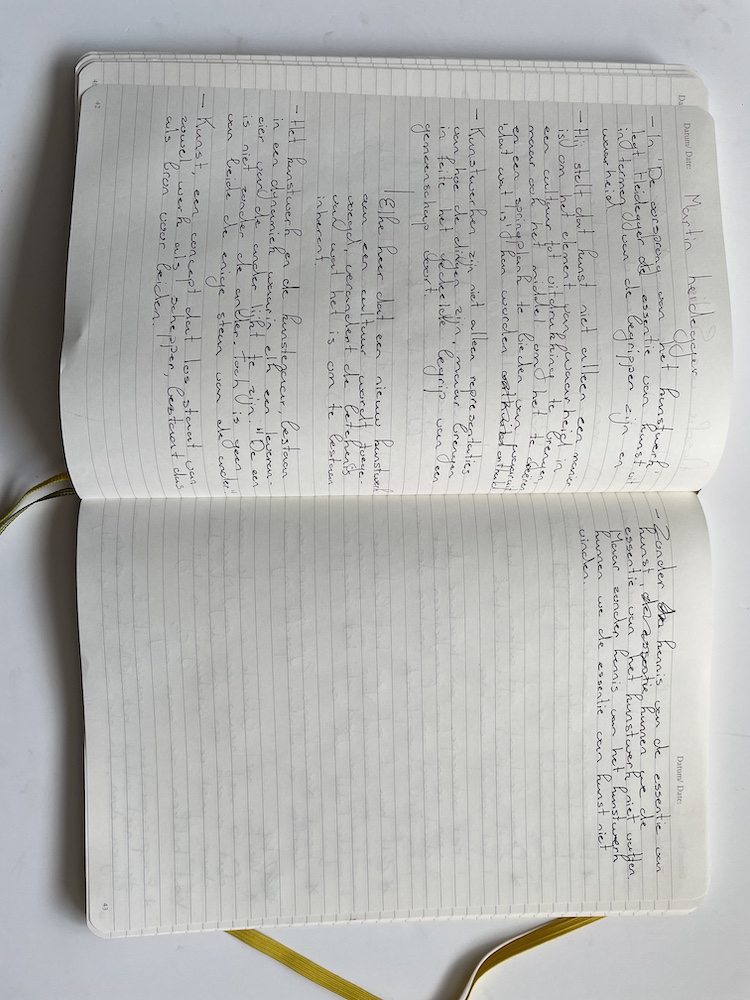 Datum/ Date: Martin heidegger
– In 'De oorsprong van het kunstwerk'
legt Heidegger de essentie van kunst uit
in termen van de begrippen zijn en
waarheid.
– Hij stelt dat kunst niet alleen een manier
is om het element van waarheid in
een cultuur tot uitdrukking te brengen,
maar ook het middel om het te creëren
en een springplank te bieden van waaruit
'dat wat is' kan worden onthuld
– Kunstwerken zijn niet alleen representaties
van hoe de dingen zijn, maar brengen
in feite het gedeelde begrip van een
gemeenschap voort.
Elke keer dat een nieuw kunstwerk
aan een cultuur wordt toege-
voegd, verandert de betekenis
van wat het is om te bestaan
inherent.
– Het kunstwerk en de kunstenaar, bestaan
in een dynamiek waarin elk een leveran-
cier van de ander lijkt te zijn. "De een
is niet zonder de ander. Toch is geen
van beide de enige steun van de ander".
– Kunst, een concept dat los staat van
zowel werk als schepper, bestaat dus
als bron voor beiden.
42
Datum/ Date:
– Zonder kennis van de essentie van
kunst, kunnen we de
essentie van het kunstwerk niet vatten.
Maar zonder kennis van het kunstwerk
kunnen we de essentie van kunst niet
vinden.
43